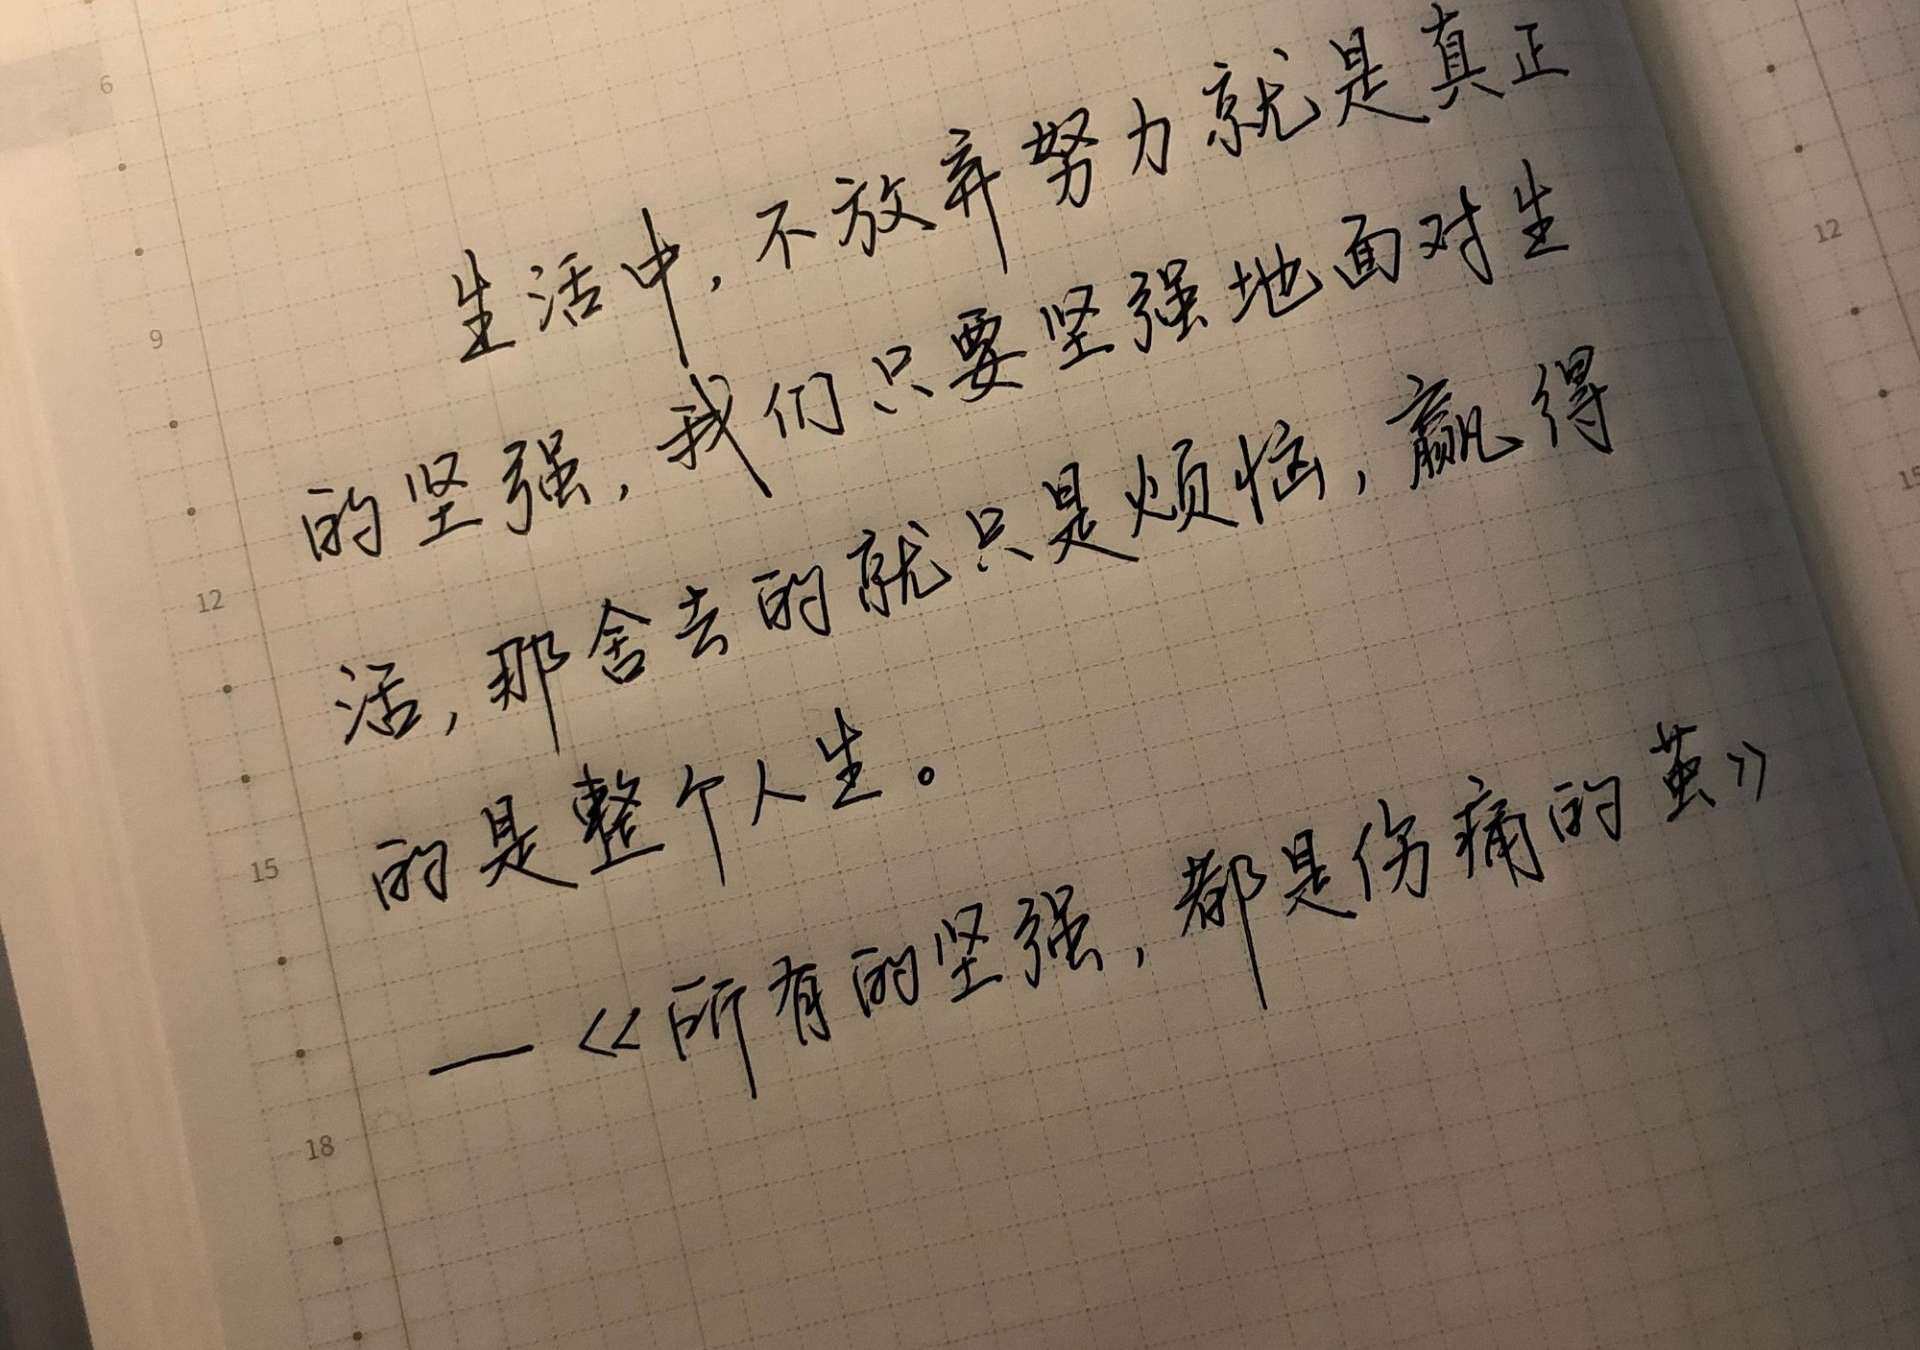 生活中，不放弃努力就是真正
的坚强，我们只要坚强地面对生
活，那舍去的就只是烦恼，赢得
的是整个人生。
—《所有的坚强，都是伤痛的茧》
6
9
12
15
18
12
15